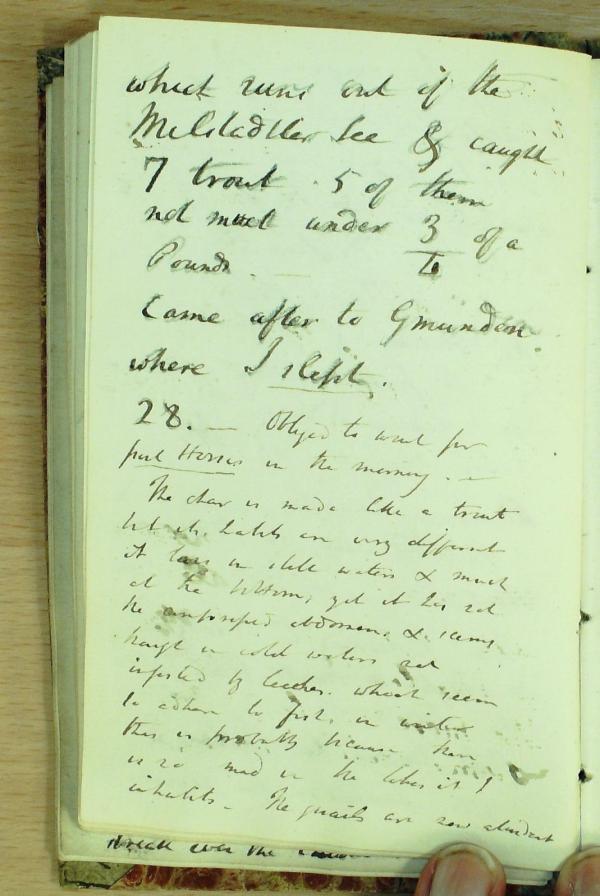 which runs out of the
Millstadtler See & caught
7 trout . 5 of them
not much under 3/4 of a
Pound . —
Came after to Gmunden
where I slept.
28. — Obliged to wait for
post Horses in the morning . —
The char is made like a trout
but its habits are very different
it lays in still waters & much
at the bottom, yet it has not
the abdomen, & seems
in cold waters not
infested by leeches which seem
to adhere to fish in winter
this is probably because there
is no mud in the lakes it
inhabits — The quails are now abundant
over the